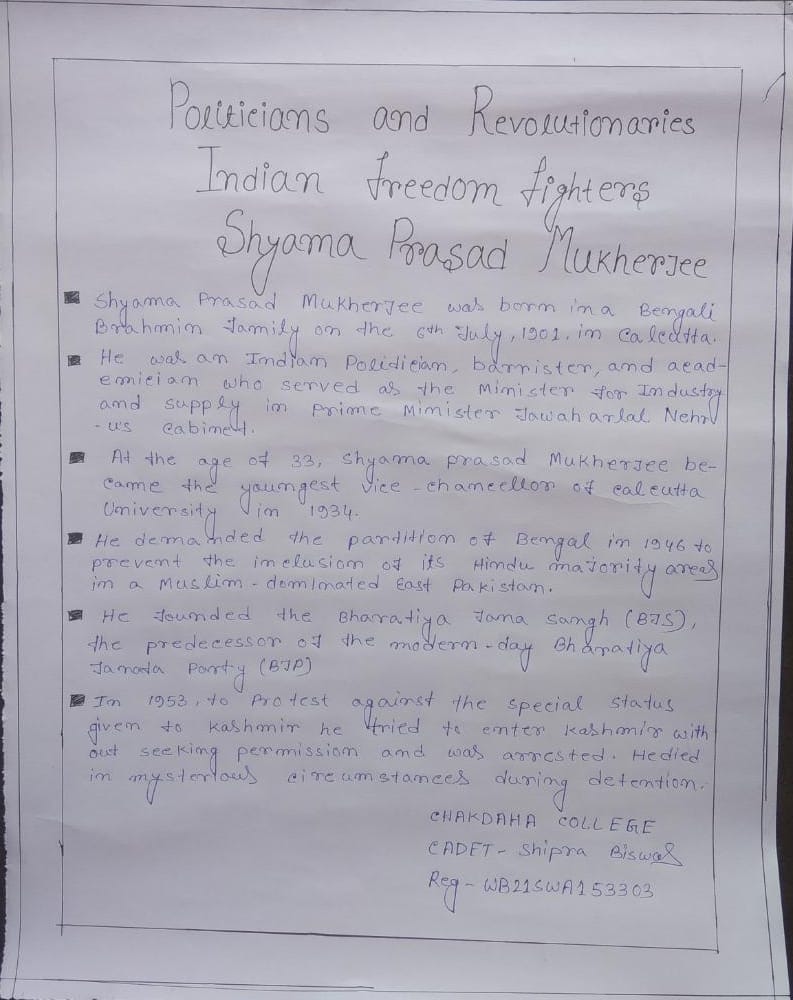 Politicians and Revolutionaries
Indian freedom fighters
Shyama Prasad Mukherjee
Shyama Prasad Mukherjee was born in a Bengali
Brahmin family on the 6th July, 1901. in Calcutta.
He was an Indian Politician, barrister, and acad-
emician who served as the Minister for Industry
and supply in prime Minister Jawaharlal Nehru
-us Cabinet.
At the age of 33, Shyama prasad Mukherjee be-
came the youngest vice-chancellor of calcutta
University in 1934.
He demanded the partition of Bengal in 1946 to
prevent the inclusion of its Hindu majority areas
in a Muslim-dominated East Pakistan.
He founded the Bharatiya Jana sangh (BJS),
the predecessor of the modern-day Bharatiya
Janata Party (BJP)
In 1953, to Protest against the special status
given to kashmir he tried to enter kashmir with
out seeking permission and was arrested. He died
in mysterious circumstances during detention.
CHAKDAHA COLLEGE
CADET- Shipra Biswas
Reg- WB21SWA153303